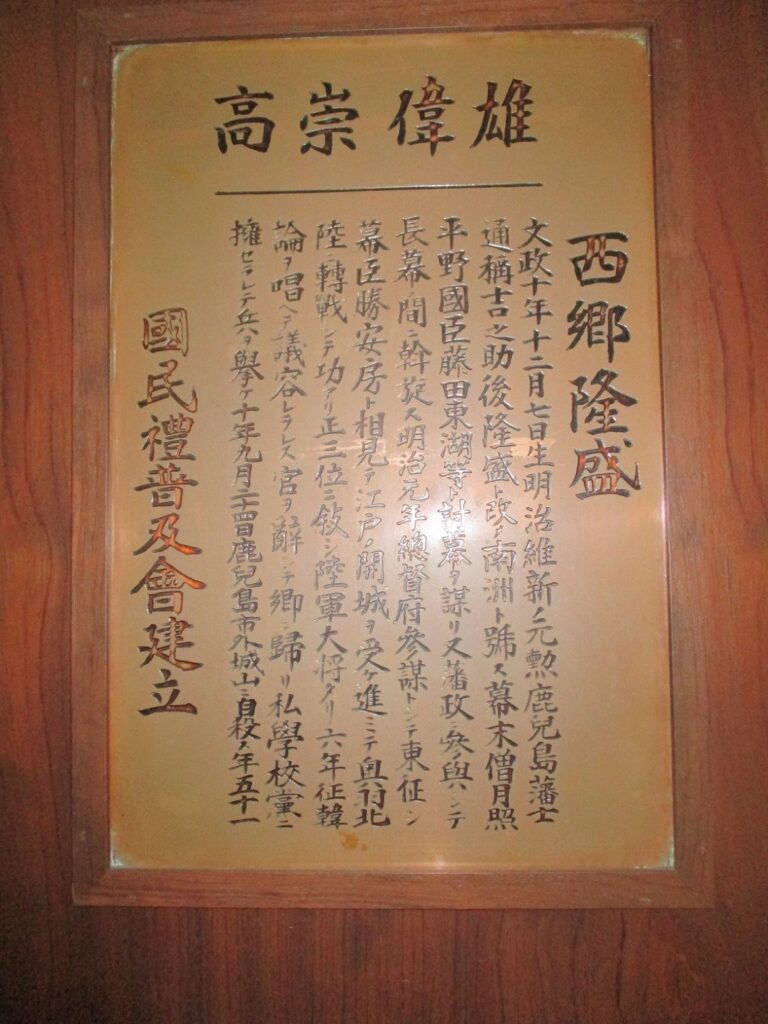 雄偉崇高
西郷隆盛
文政十年十二月七日生明治維新ノ元勲鹿兒島藩士
通稱吉之助後隆盛ト改メ南洲ト號ス幕末僧月照
平野國臣藤田東湖等ト討幕ヲ謀リ又藩政ニ參與シテ
長幕ノ間ニ斡旋ス明治元年總督府參謀トシテ東征シ
幕臣勝安房ト相見テ江戸ノ開城ヲ受ケ進ミテ奥羽北
陸ニ轉戰シテ功アリ正三位ニ敍シ陸軍大将タリ六年征韓
論ヲ唱ヘテ議容レラレス官ヲ辭シテ郷ニ歸リ私學校黨ニ
擁セラレテ兵ヲ擧ケ十年九月二十四日鹿兒島市外城山ニ自殺ス年五十一
國民禮普及會建立